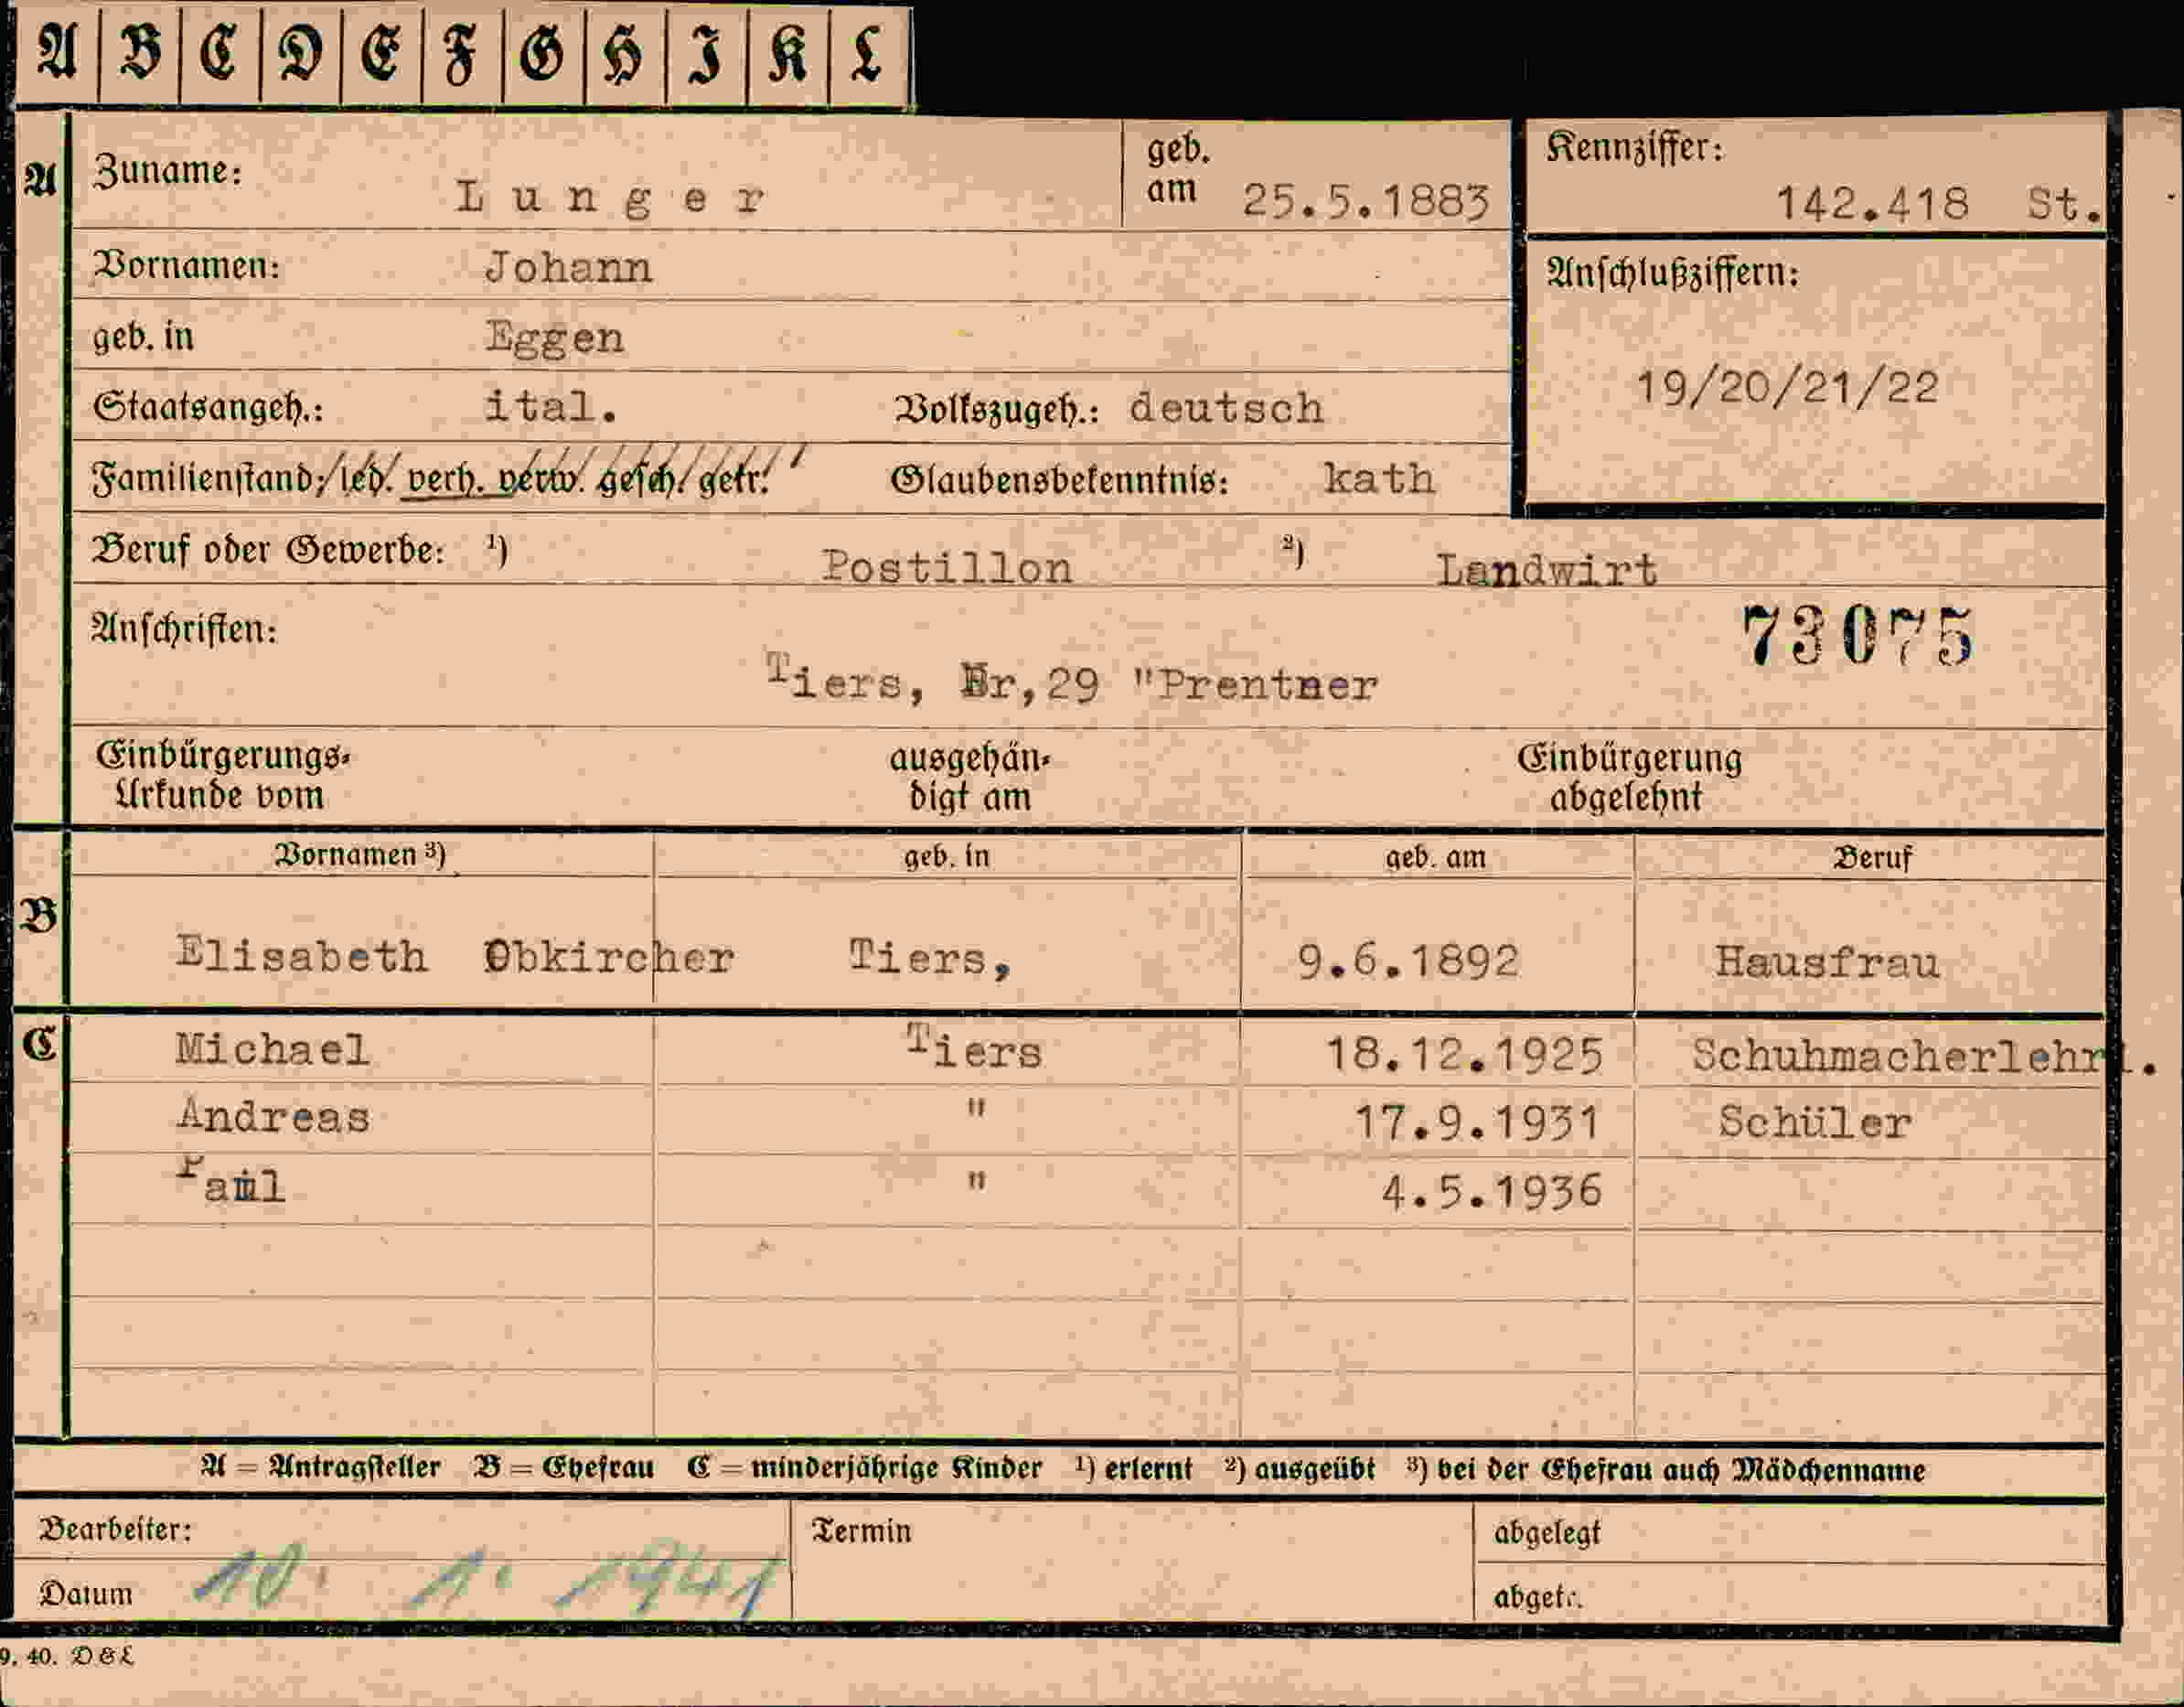 A B C D E F G H I K L
A Zuname: Lunger geb. am 25.5.1883
Kennziffer: 142.418 St.
Vornamen: Johann
Anschlußziffern:
geb. in Eggen
19/20/21/22
Staatsangeh.: ital. Volkszugeh.: deutsch
Familienstand: led. verh. verw. gesch. getr. Glaubensbekenntnis: kath
Beruf oder Gewerbe: ¹) Postillon ²) Landwirt
Anschriften: 73075
Tiers, Nr,29 "Prentner
Einbürgerungs-Urkunde vom ausgehändigt am Einbürgerung abgelehnt
Vornamen ³) geb. in geb. am Beruf
B Elisabeth Obkircher Tiers, 9.6.1892 Hausfrau
C Michael Tiers 18.12.1925 Schuhmacherlehrl.
Andreas " 17.9.1931 Schüler
Paul " 4.5.1936
A = Antragsteller B = Ehefrau C = minderjährige Kinder ¹) erlernt ²) ausgeübt ³) bei der Ehefrau auch Mädchenname
Bearbeiter: Termin abgelegt
Datum 10. 1. 1941 abgetr.
9. 40. D & L